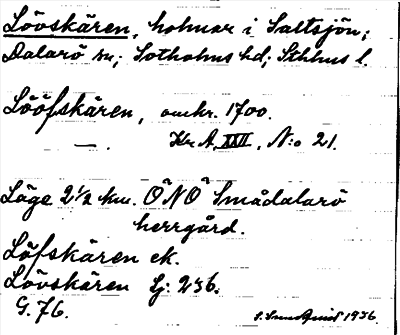 Lövskären, holmar i Saltsjön;
Dalarö sn; Sotholms hd; Sthlms l.
Lööfskären, omkr. 1700.
—. Kr A, XXII, N:o 21.
Läge 2 1/2 km. ÖNÖ Smådalarö
herrgård.
Löfskären ek.
Lövskären Sj: 236.
G. 76.
1936